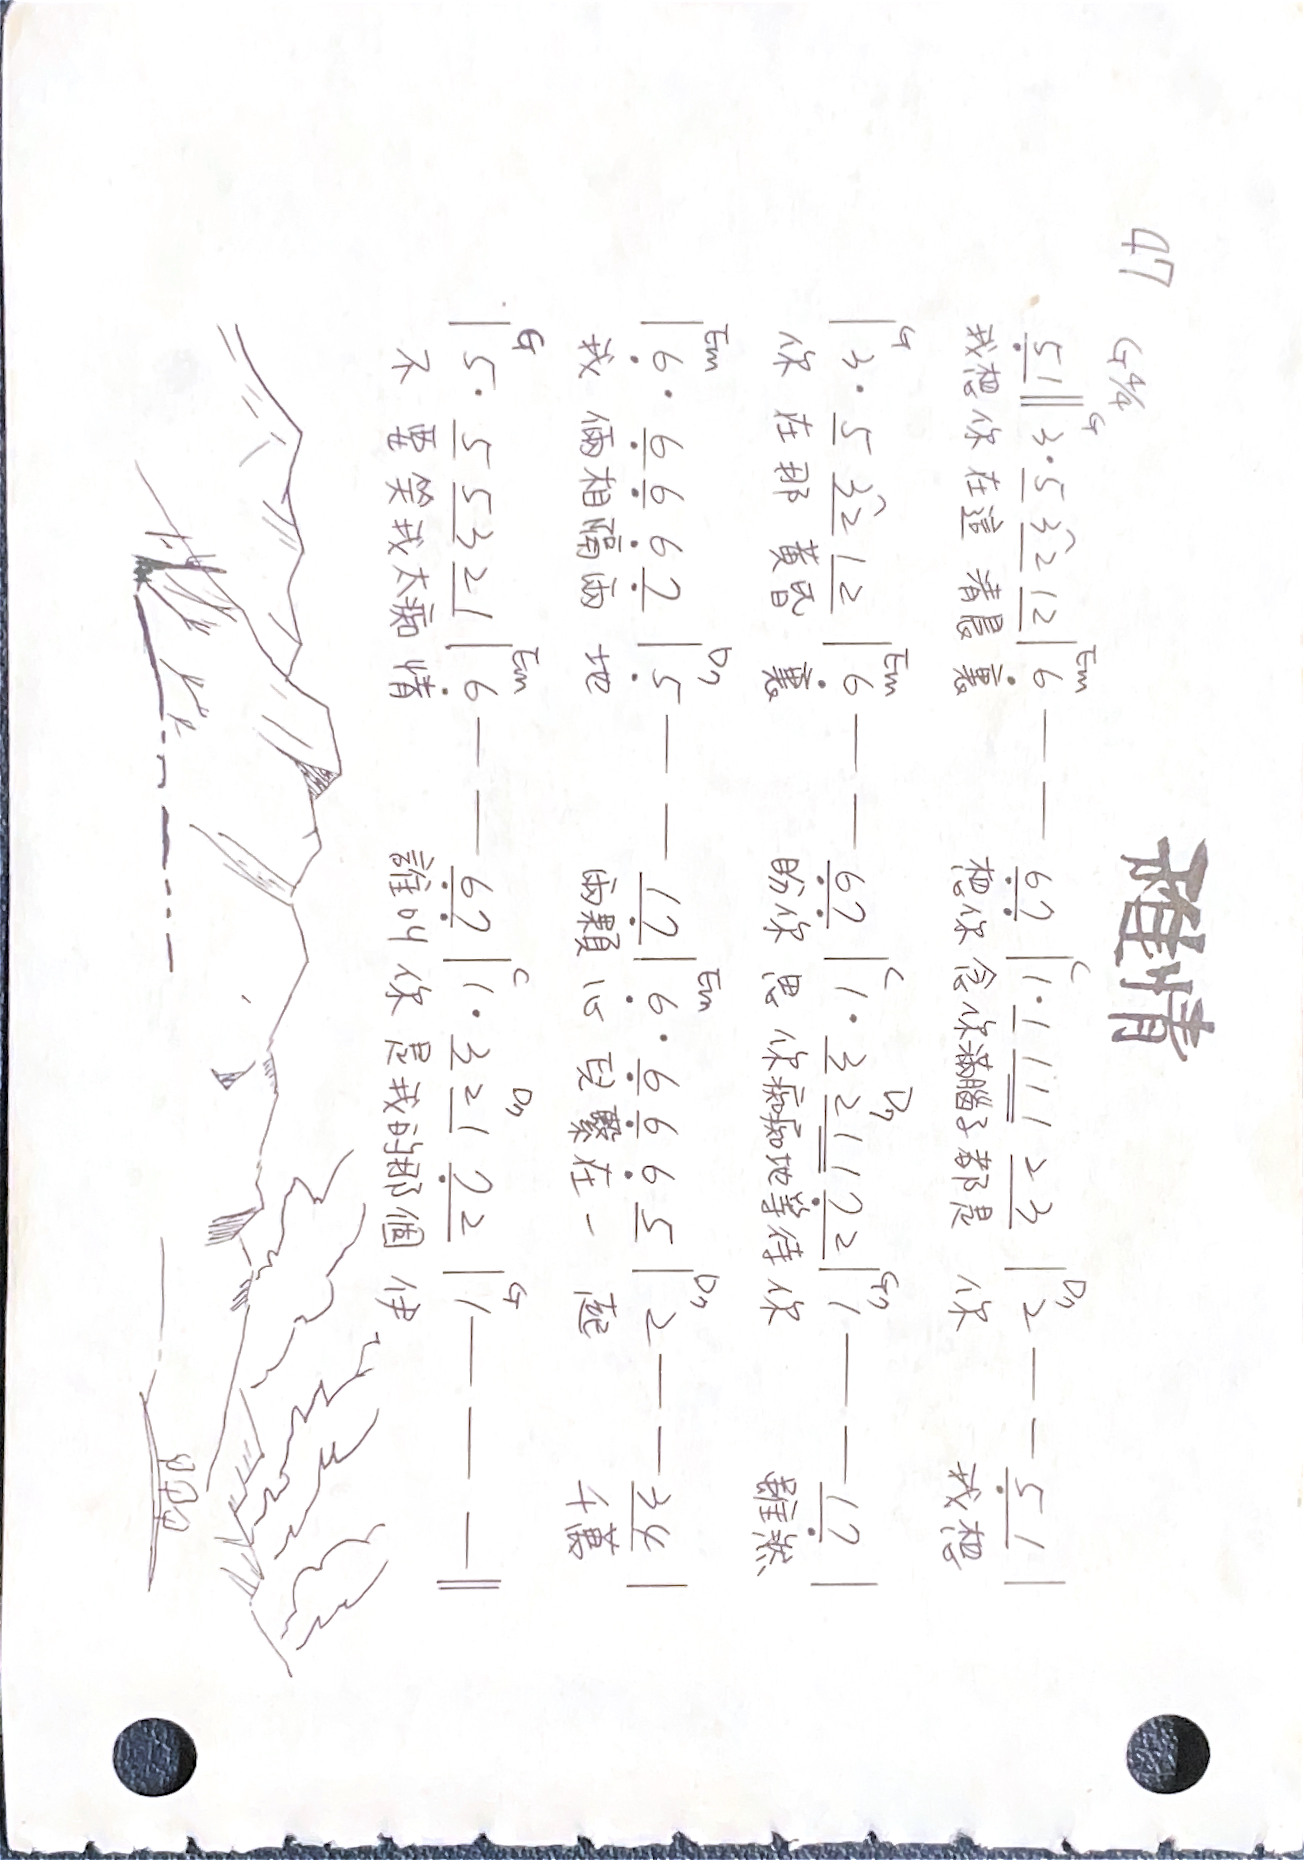 雅情
47 G 4/4
G Em C D7
5 1 ‖ 3 · 5 3 2 1 2 | 6 — — 6 7 | 1 · 1 1 1 1 2 3 | 2 — — 5 1 |
我想你在這清晨裏 想你念你滿腦子都是你 我想
G Em C D7 G7
| 3 · 5 3 2 1 2 | 6 — — 6 7 | 1 · 3 2 1 1 7 2 | 1 — — 1 7 |
你在那黃昏裏 盼你思你痴痴地等待你 雖然
Em D7 Em D7
| 6 · 6 6 6 7 | 5 — — 1 7 | 6 · 6 6 6 5 | 2 — — 3 4 |
我倆相隔兩地 兩顆心兒繫在一起 千萬
G Em C D7 G
| 5 · 5 5 3 2 1 | 6 — — 6 7 | 1 · 3 2 1 7 2 | 1 — — — ‖
不要笑我太痴情 誰叫你是我的那個伊